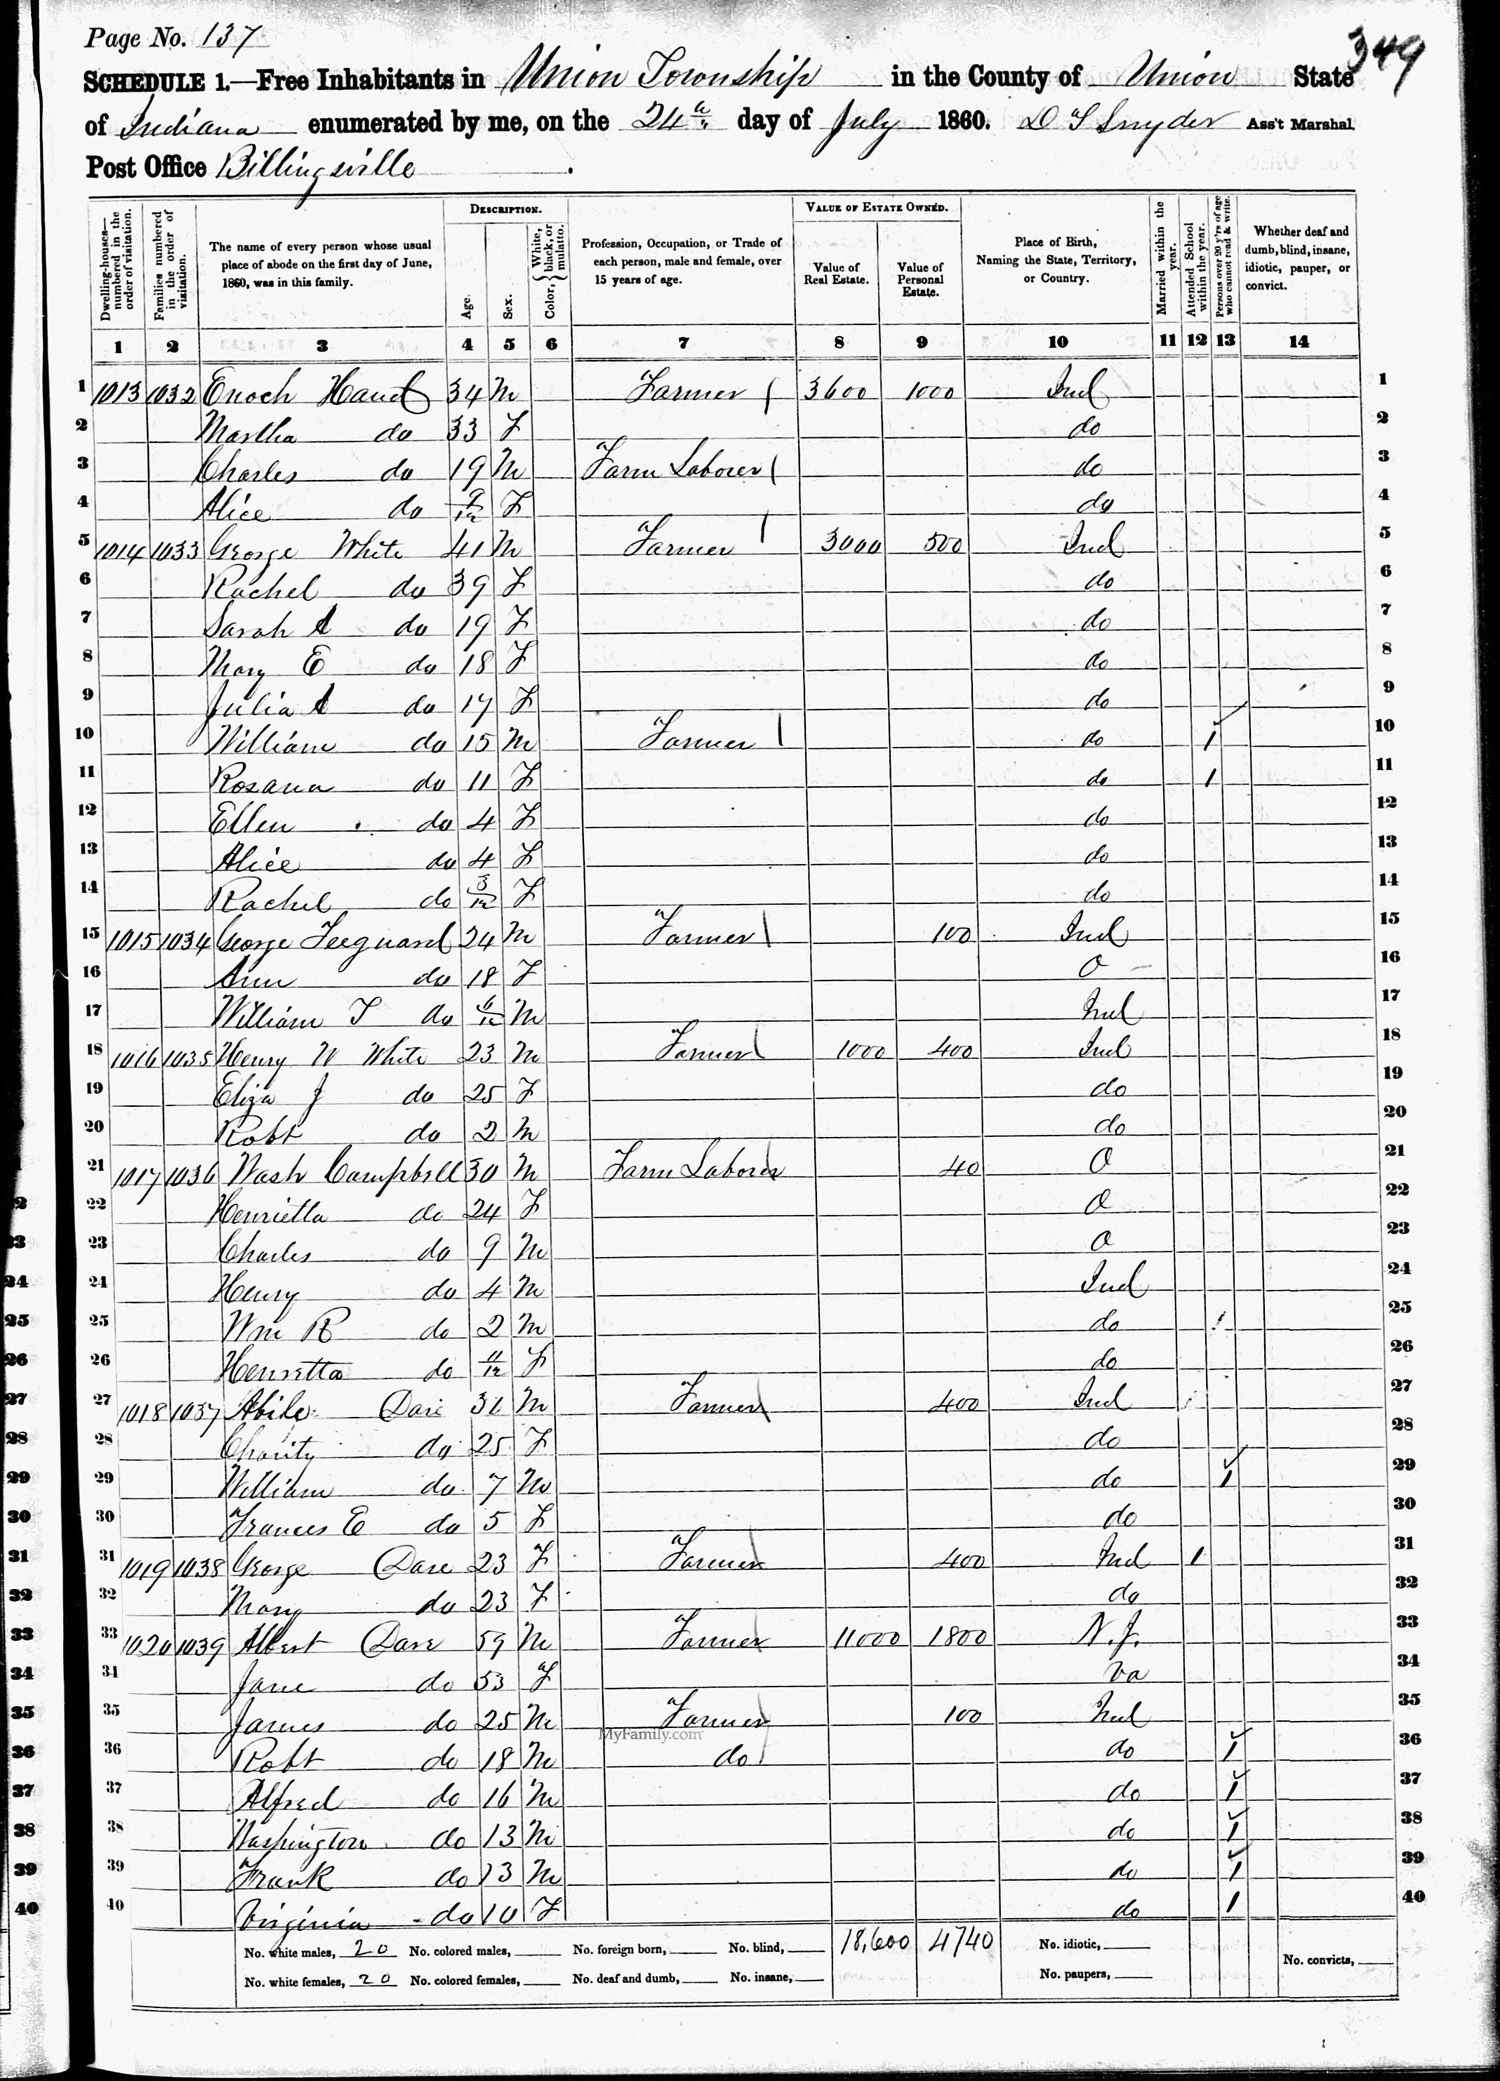 Page No. 137
349
SCHEDULE 1.—Free Inhabitants in Union Township in the County of Union State
of Indiana enumerated by me, on the 24th day of July 1860. D S Snyder Ass't Marshal.
Post Office Billingsville.
Dwelling-houses—numbered in the order of visitation. Families numbered in the order of visitation. The name of every person whose usual place of abode on the first day of June, 1860, was in this family. DESCRIPTION. Age. Sex. Color, { White, black, or mulatto. Profession, Occupation, or Trade of each person, male and female, over 15 years of age. VALUE OF ESTATE OWNED. Value of Real Estate. Value of Personal Estate. Place of Birth, Naming the State, Territory, or Country. Married within the year. Attended School within the year. Persons over 20 y'rs of age who cannot read & write. Whether deaf and dumb, blind, insane, idiotic, pauper, or convict.
1 2 3 4 5 6 7 8 9 10 11 12 13 14
1 1013 1032 Enoch Hand 34 M Farmer 3600 1000 Ind 1
2 Martha do 33 F do 2
3 Charles do 19 M Farm Laborer do 3
4 Alice do 9/12 F do 4
5 1014 1033 George White 41 M Farmer 3000 500 Ind 5
6 Rachel do 39 F do 6
7 Sarah A do 19 F do 7
8 Mary E do 18 F do 8
9 Julia A do 17 F do 9
10 William do 15 M Farmer do 1 10
11 Rosana do 11 F do 1 11
12 Ellen do 4 F do 12
13 Alice do 4 F do 13
14 Rachel do 3/12 F do 14
15 1015 1034 George Feeguard 24 M Farmer 100 Ind 15
16 Ann do 18 F O 16
17 William T do 6/12 M Ind 17
18 1016 1035 Henry W White 23 M Farmer 1000 400 Ind 18
19 Eliza J do 25 F do 19
20 Robt do 2 M do 20
21 1017 1036 Wash Campbell 30 M Farm Laborer 40 O 21
22 Henrietta do 24 F O 22
23 Charles do 9 M O 23
24 Henry do 4 M Ind 24
25 Wm R do 2 M do 25
26 Henretta do 11/12 F do 26
27 1018 1037 Dare 31 M Farmer 400 Ind 27
28 Charity do 25 F do 28
29 William do 7 M do 1 29
30 Frances E do 5 F do 30
31 1019 1038 George Dare 23 F Farmer 400 Ind 1 31
32 Mary do 23 F do 32
33 1020 1039 Albert Dare 59 M Farmer 11000 1800 N.J. 33
34 Jane do 53 F Va 34
35 James do 25 M Farmer 100 Ind 35
MyFamily.com
36 Robt do 18 M do do 1 36
37 Alfred do 16 M do 1 37
38 Washington do 13 M do 1 38
39 Frank do 13 M do 1 39
40 Virginia do 10 F do 1 40
No. white males, 20 No. colored males, No. foreign born, No. blind, 18,600 4740 No. idiotic,
No. white females, 20 No. colored females, No. deaf and dumb, No. insane, No. paupers, No. convicts,